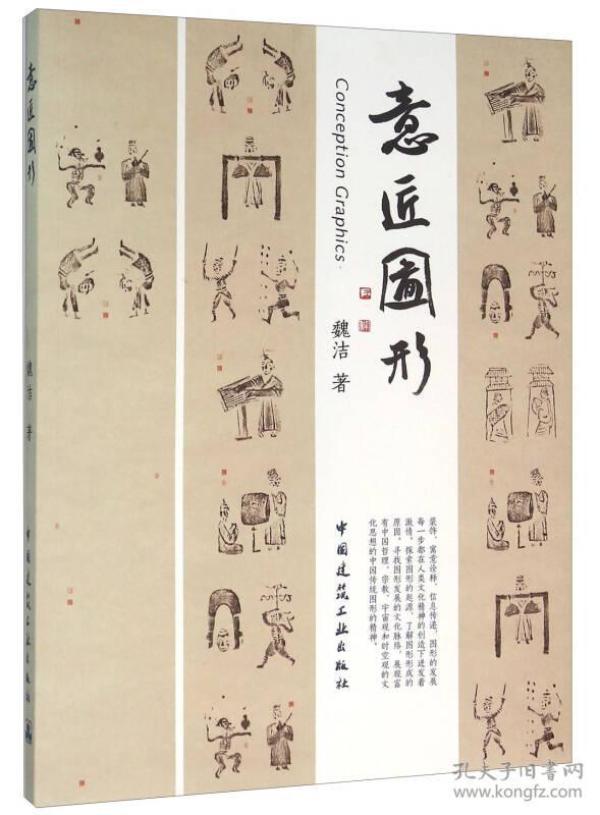 意匠图形
魏洁 著
中国建筑工业出版社
意匠图形
Conception Graphics·
魏洁 著
装饰，寓意诠释，信息传递，图形的发展
每一步都在人类文化精神的创造下迸发着
激情。探索图形的起源，了解图形形成的
原因，寻找图形发展的文化脉络，展现富
有中国哲理、宗教、宇宙观和时空观的文
化思想的中国传统图形的精神。
中国建筑工业出版社
孔夫子旧书网
www.kongfz.com